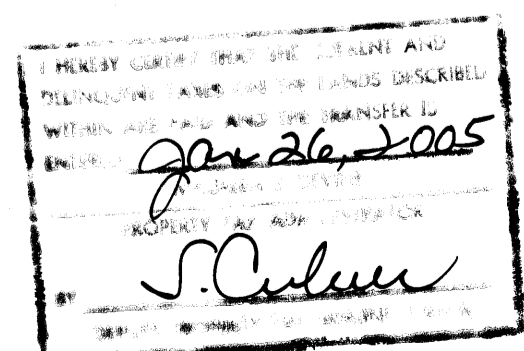 I HEREBY CERTIFY THAT THE CURRENT AND
DELINQUENT TAXES ON THE LANDS DESCRIBED
WITHIN ARE PAID AND THE TRANSFER IS
ENTERED Jan 26, 2005
PROPERTY TAX ADMINISTRATOR
BY S. Culver
DEPUTY PROPERTY TAX ADMINISTRATOR